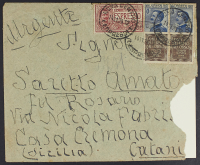 Urgente
Signor
Saretto Amato
fu Rosario
Via Nicola Fabri
Casa Cremona
(Sicilia) Catani